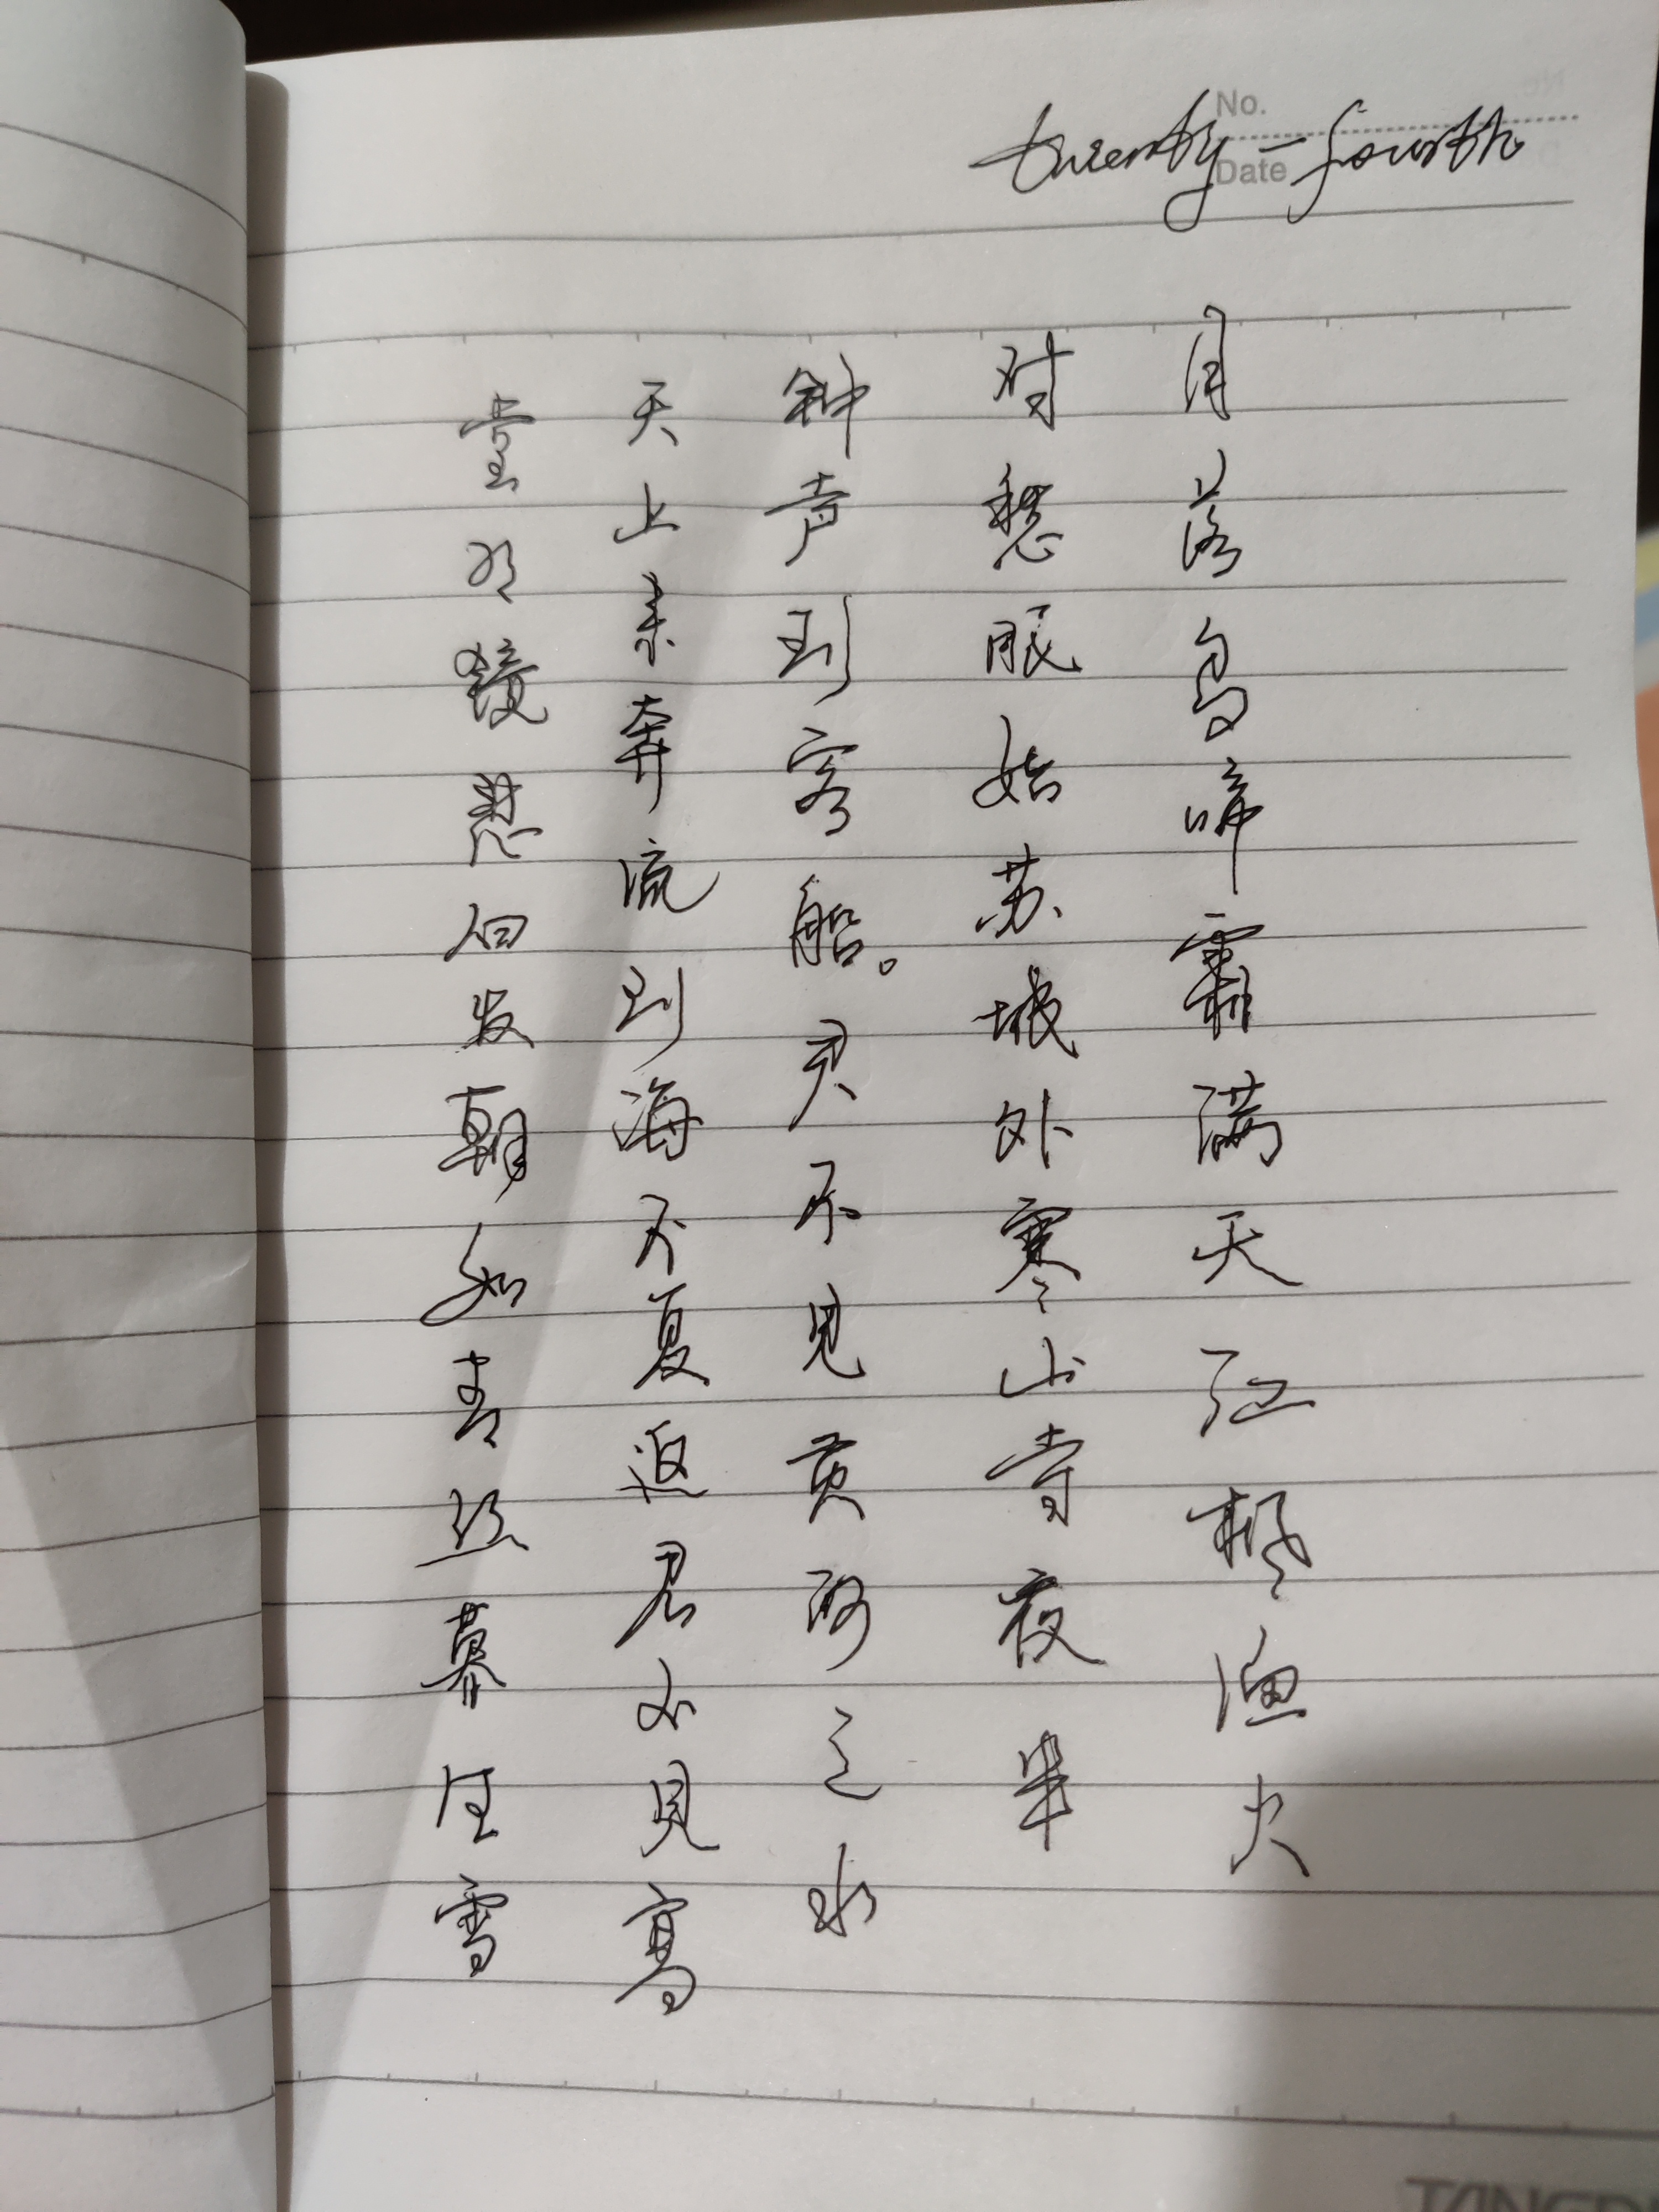 No.
Date
twenty-fourth
月落乌啼霜满天江枫渔火
对愁眠姑苏城外寒山寺夜半
钟声到客船。君不见黄河之水
天上来奔流到海不复返君不见高
堂明镜悲白发朝如青丝暮成雪